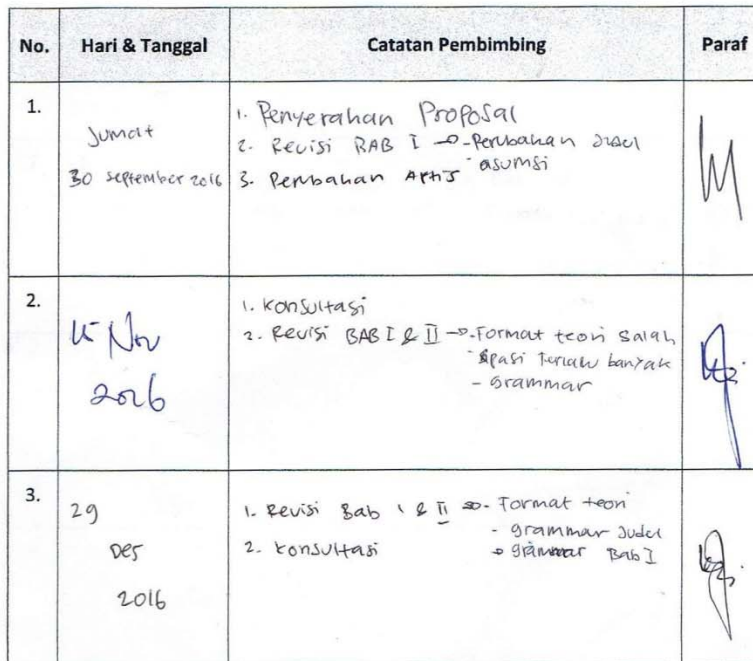 No. Hari & Tanggal Catatan Pembimbing Paraf
1.
Jumat
30 september 2016
1. Penyerahan Proposal
2. Revisi BAB I → - Perubahan Judul
- asumsi
3. Perubahan
2.
15 Nov
2016
1. Konsultasi
2. Revisi BAB I & II → - Format teori salah
- Spasi Terlalu banyak
- grammar
3.
29
Des
2016
1. Revisi Bab I & II → - Format teori
- grammar Judul
- grammar Bab I
2. Konsultasi